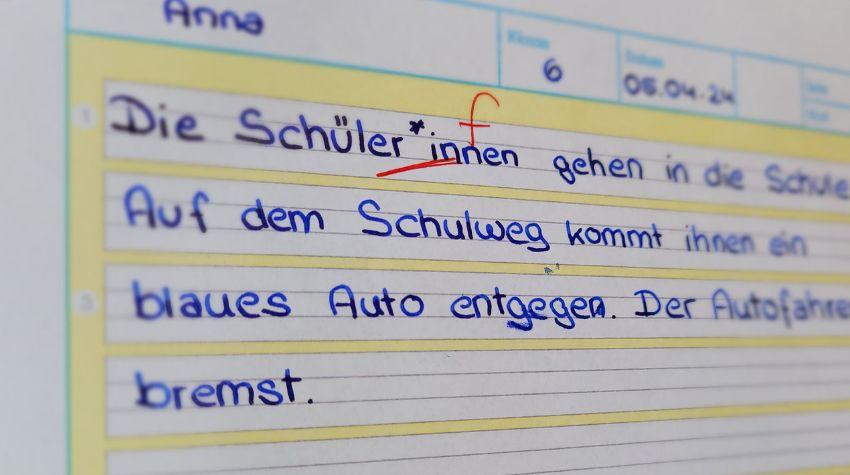 Anna
Klasse
6
Datum
05.04.24
1
f
Die Schüler*innen gehen in die Schule
Auf dem Schulweg kommt ihnen ein
3
blaues Auto entgegen. Der Autofahre
bremst.